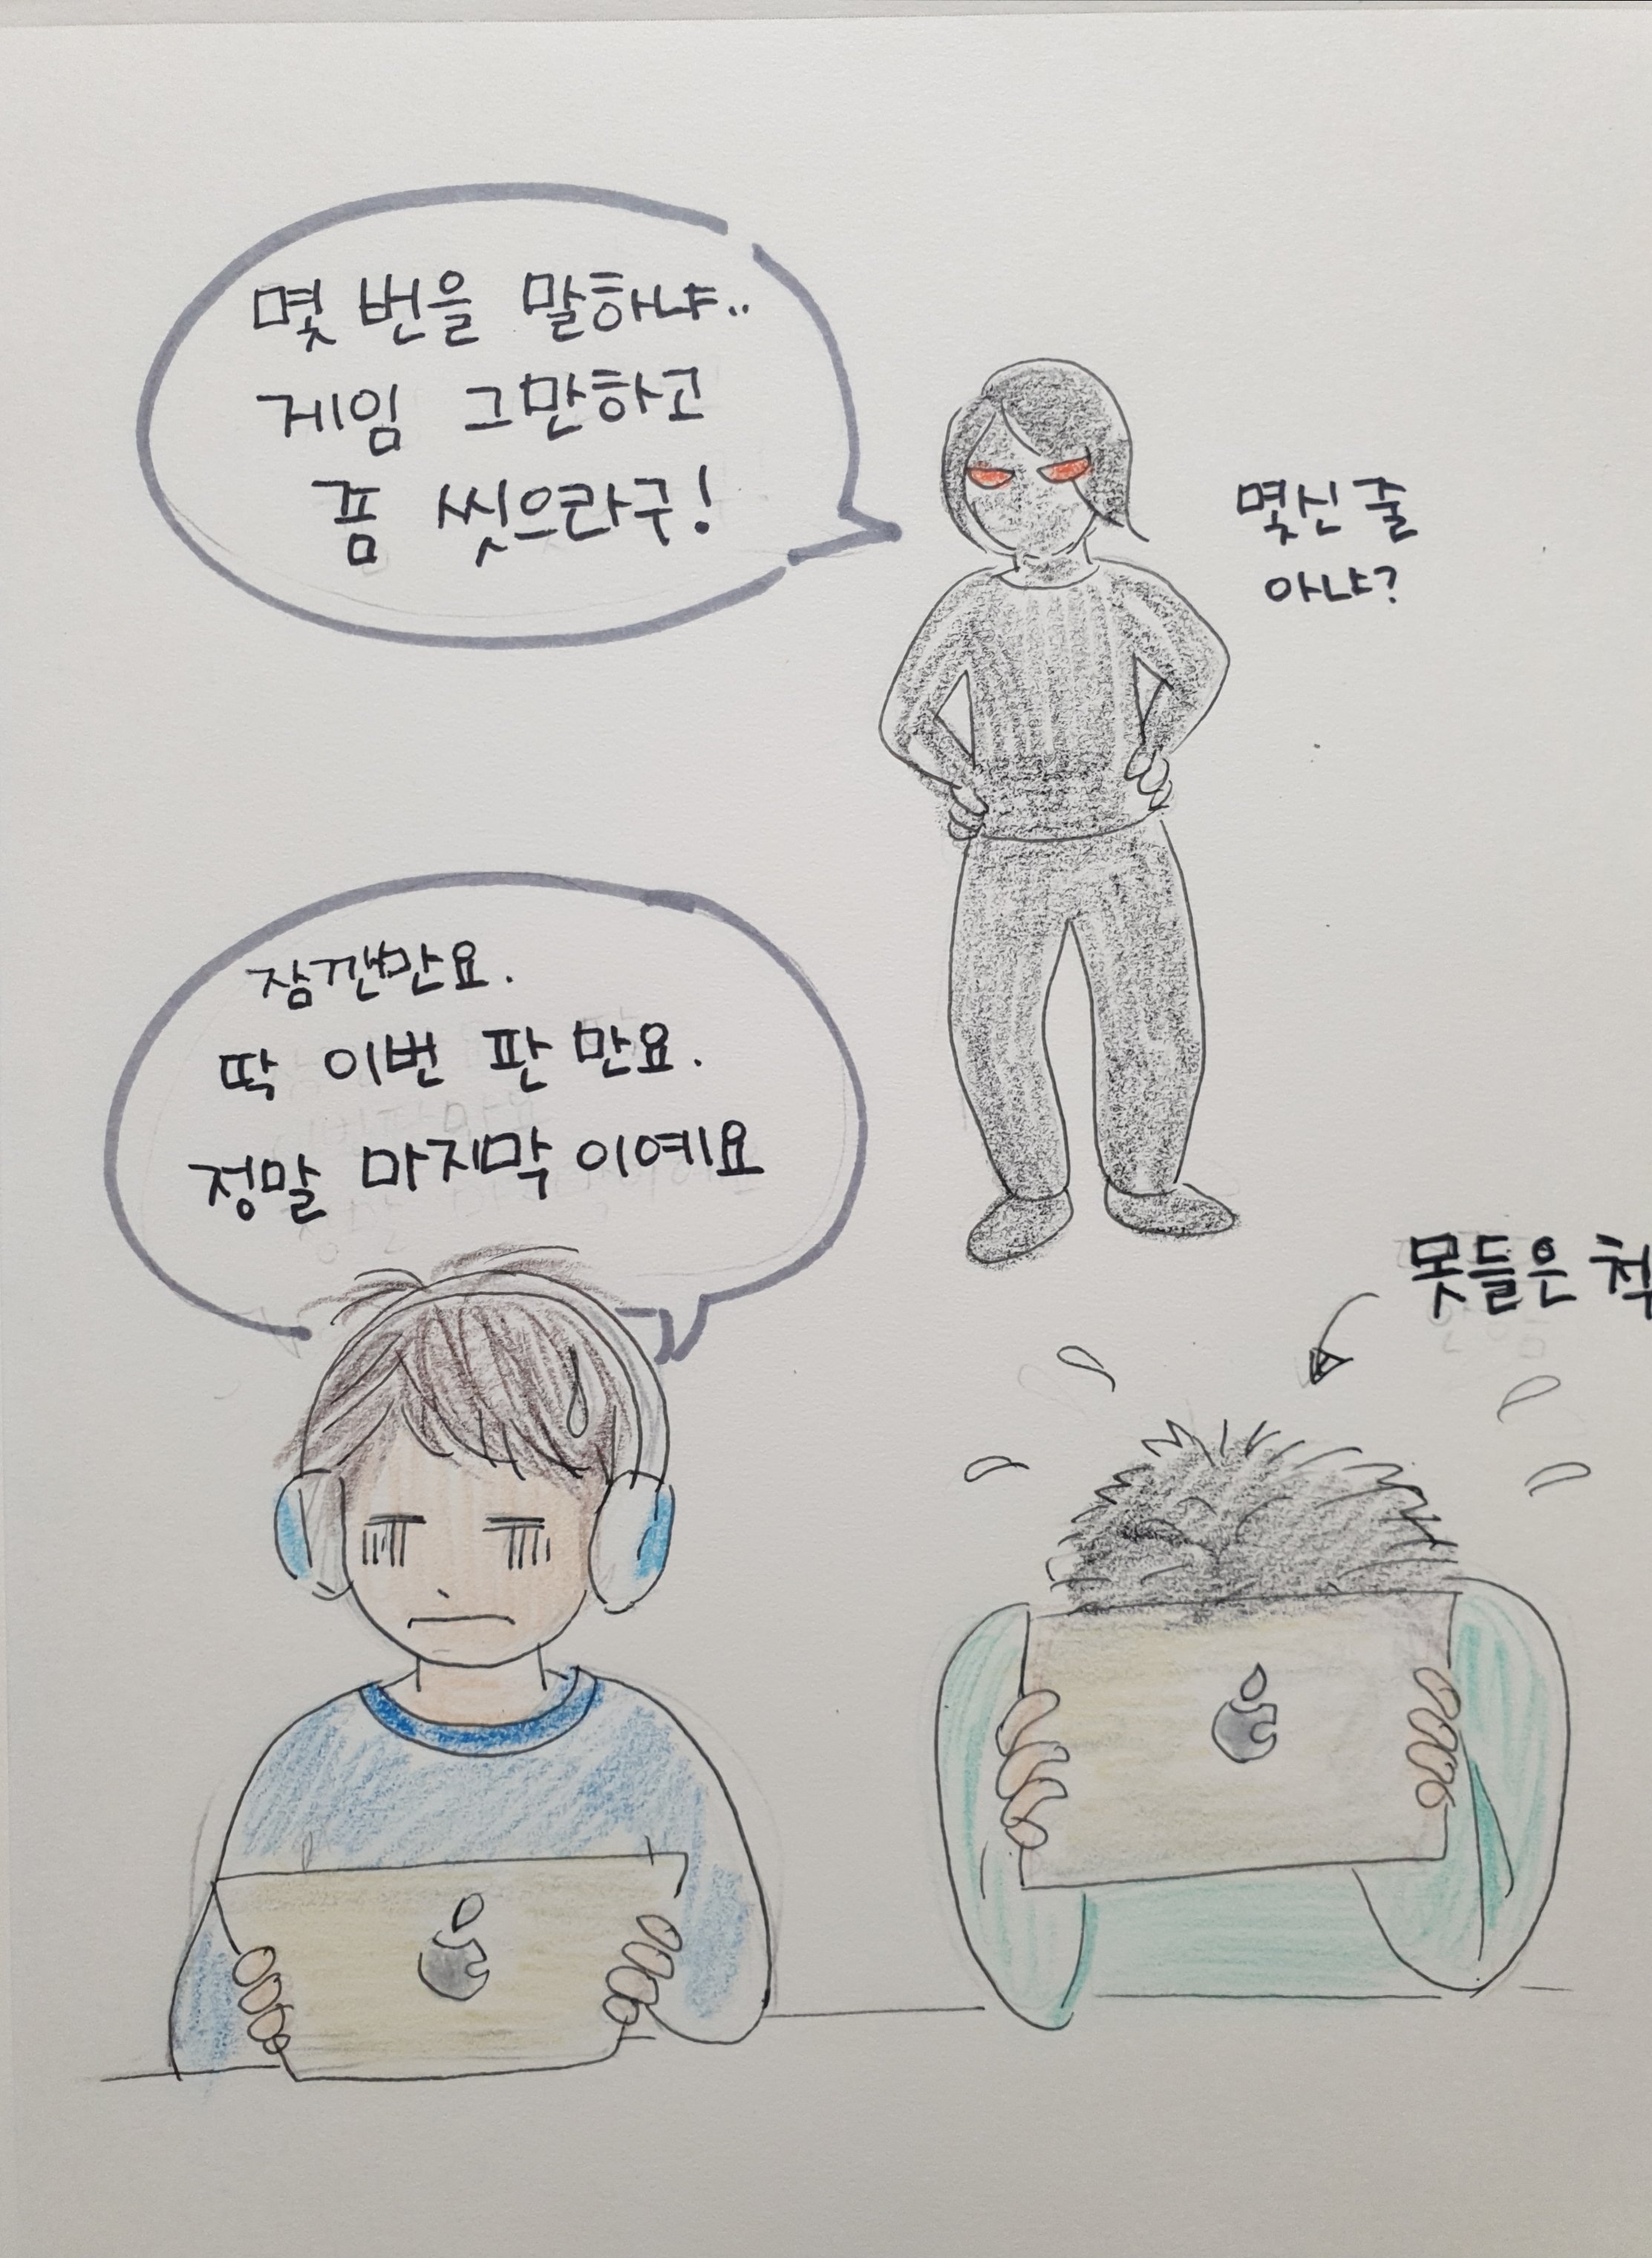 몇 번을 말하냐..
게임 그만하고
좀 씻으라구!
몇신 줄
아냐?
잠깐만요.
딱 이번 판 만요.
정말 마지막 이예요
못들은 척